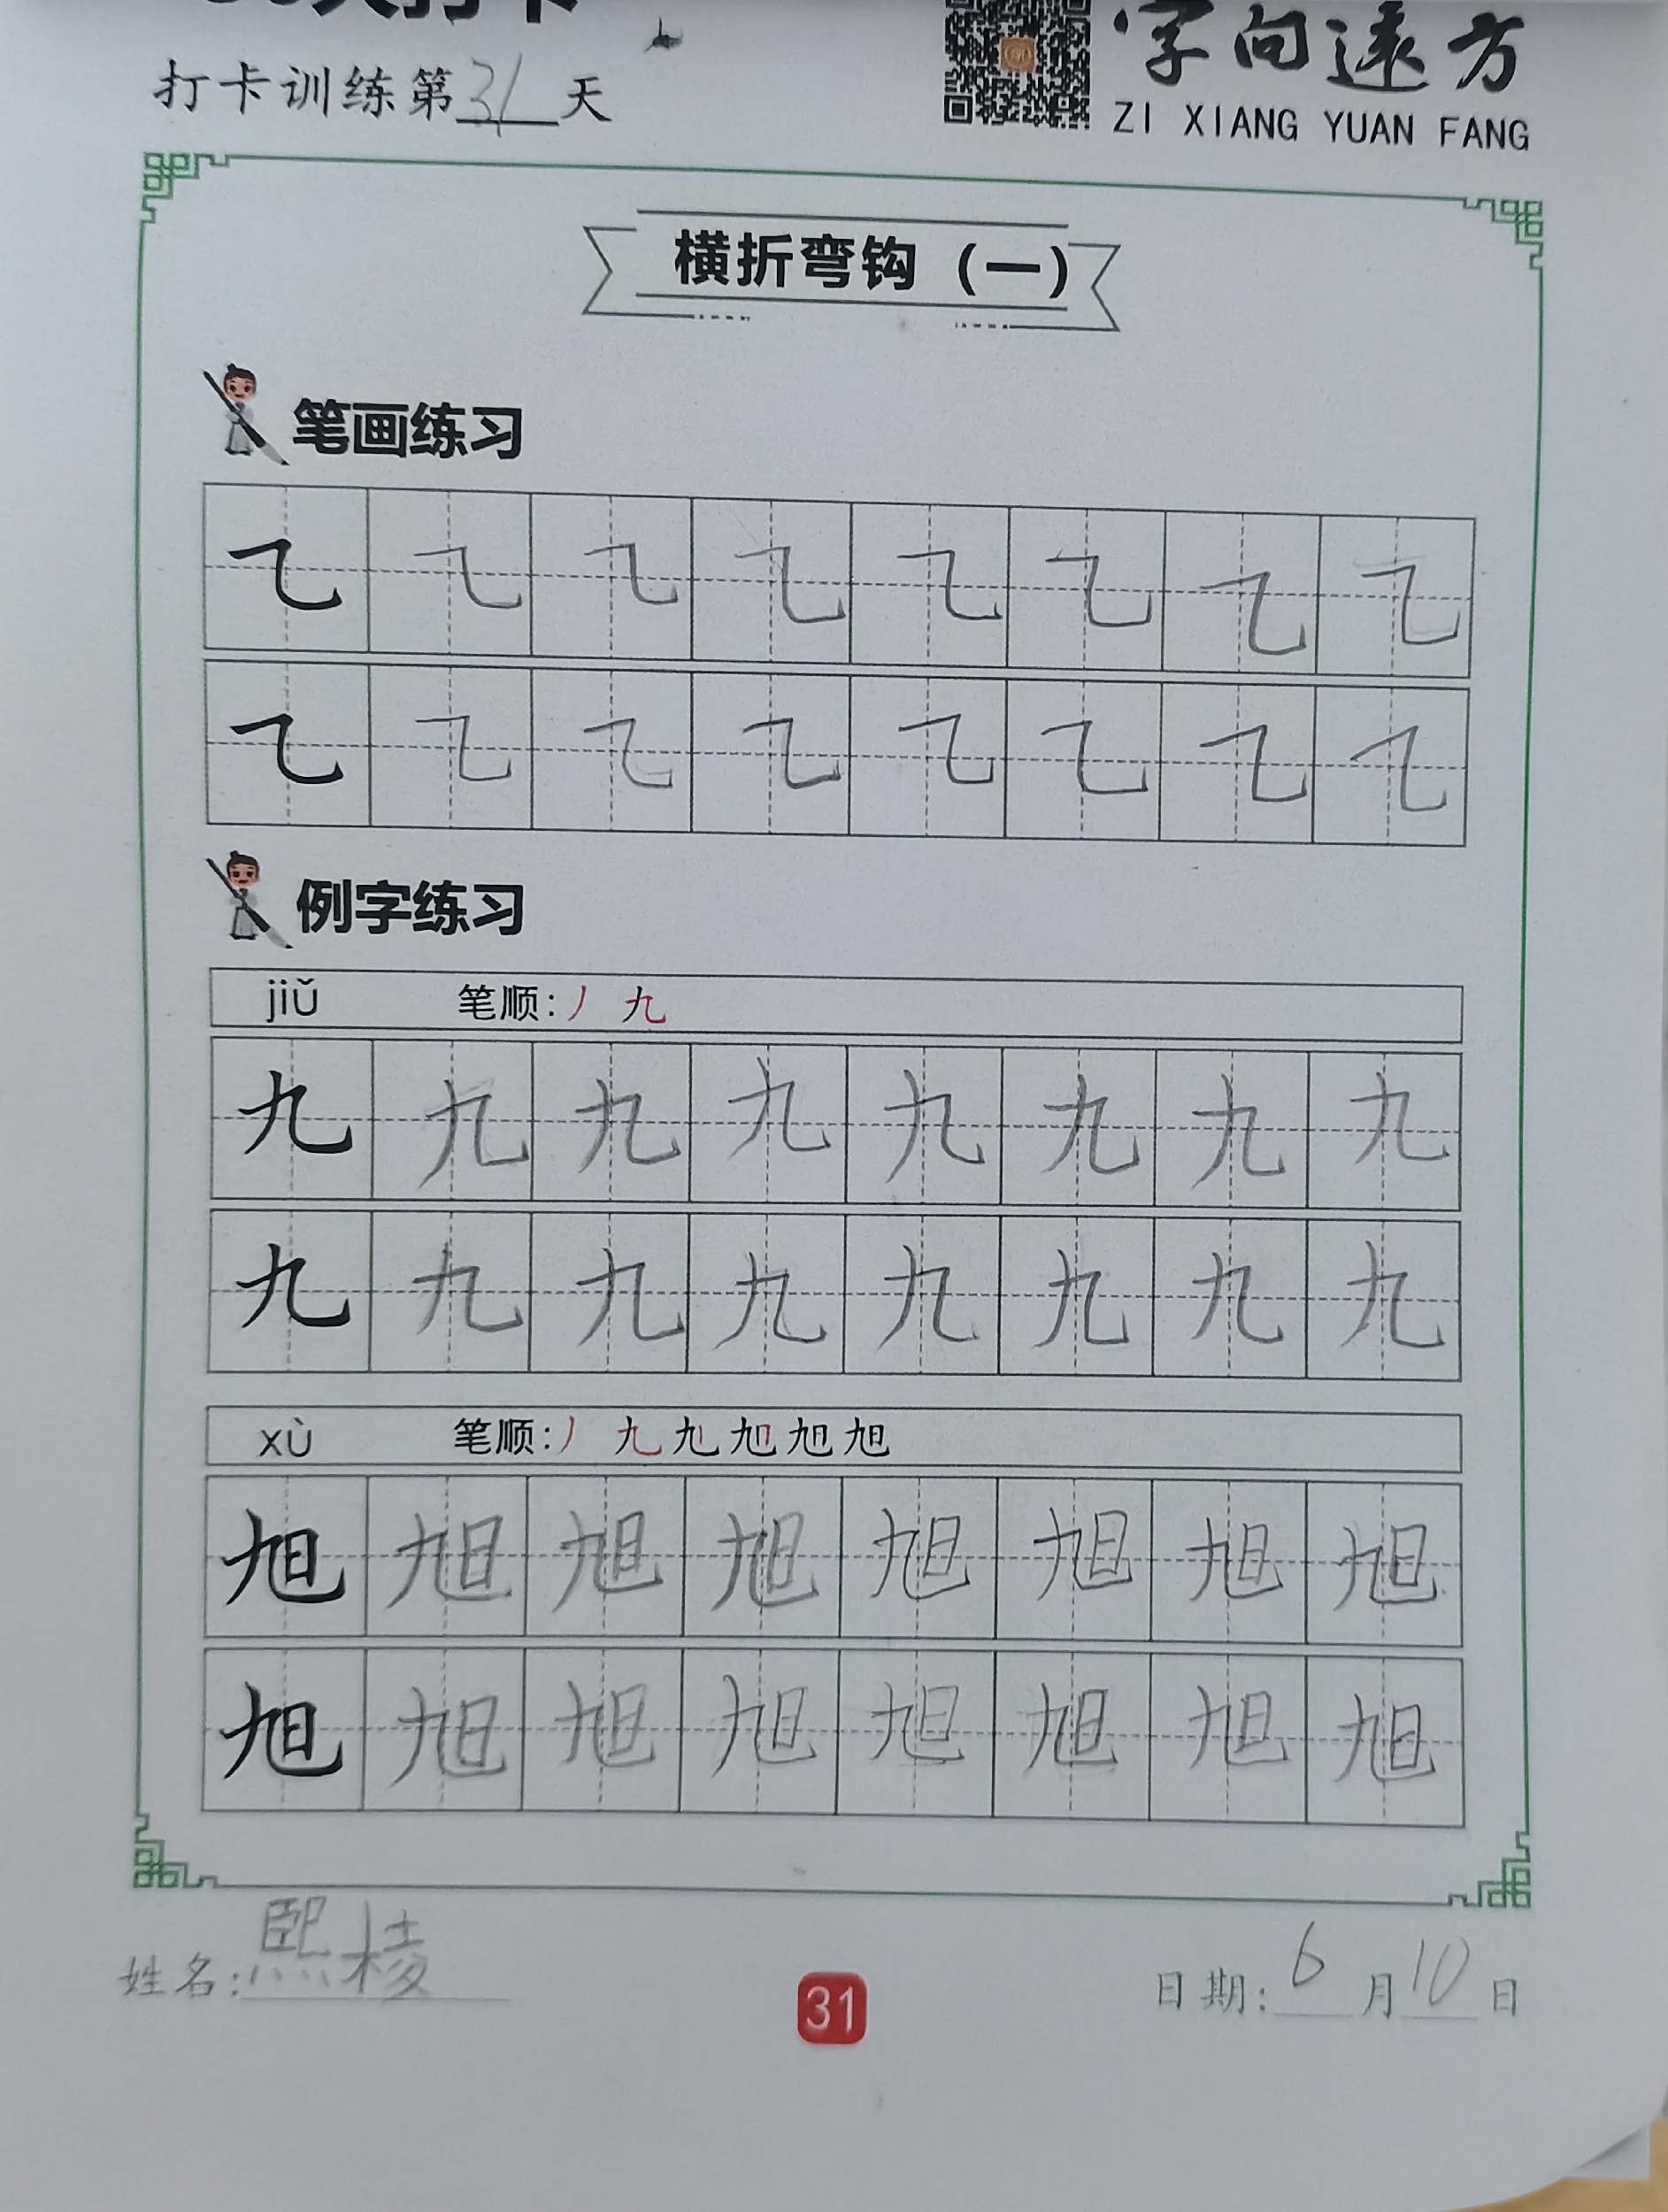 打卡训练第31天
字向远方
ZI XIANG YUAN FANG
横折弯钩（一）
笔画练习
例字练习
jiǔ 笔顺：丿 九
九 九 九 九 九 九 九 九
九 九 九 九 九 九 九 九
xù 笔顺：丿 九 旭 旭 旭
旭 旭 旭 旭 旭 旭 旭 旭
旭 旭 旭 旭 旭 旭 旭 旭
姓名：熙棱
31
日期：6月10日